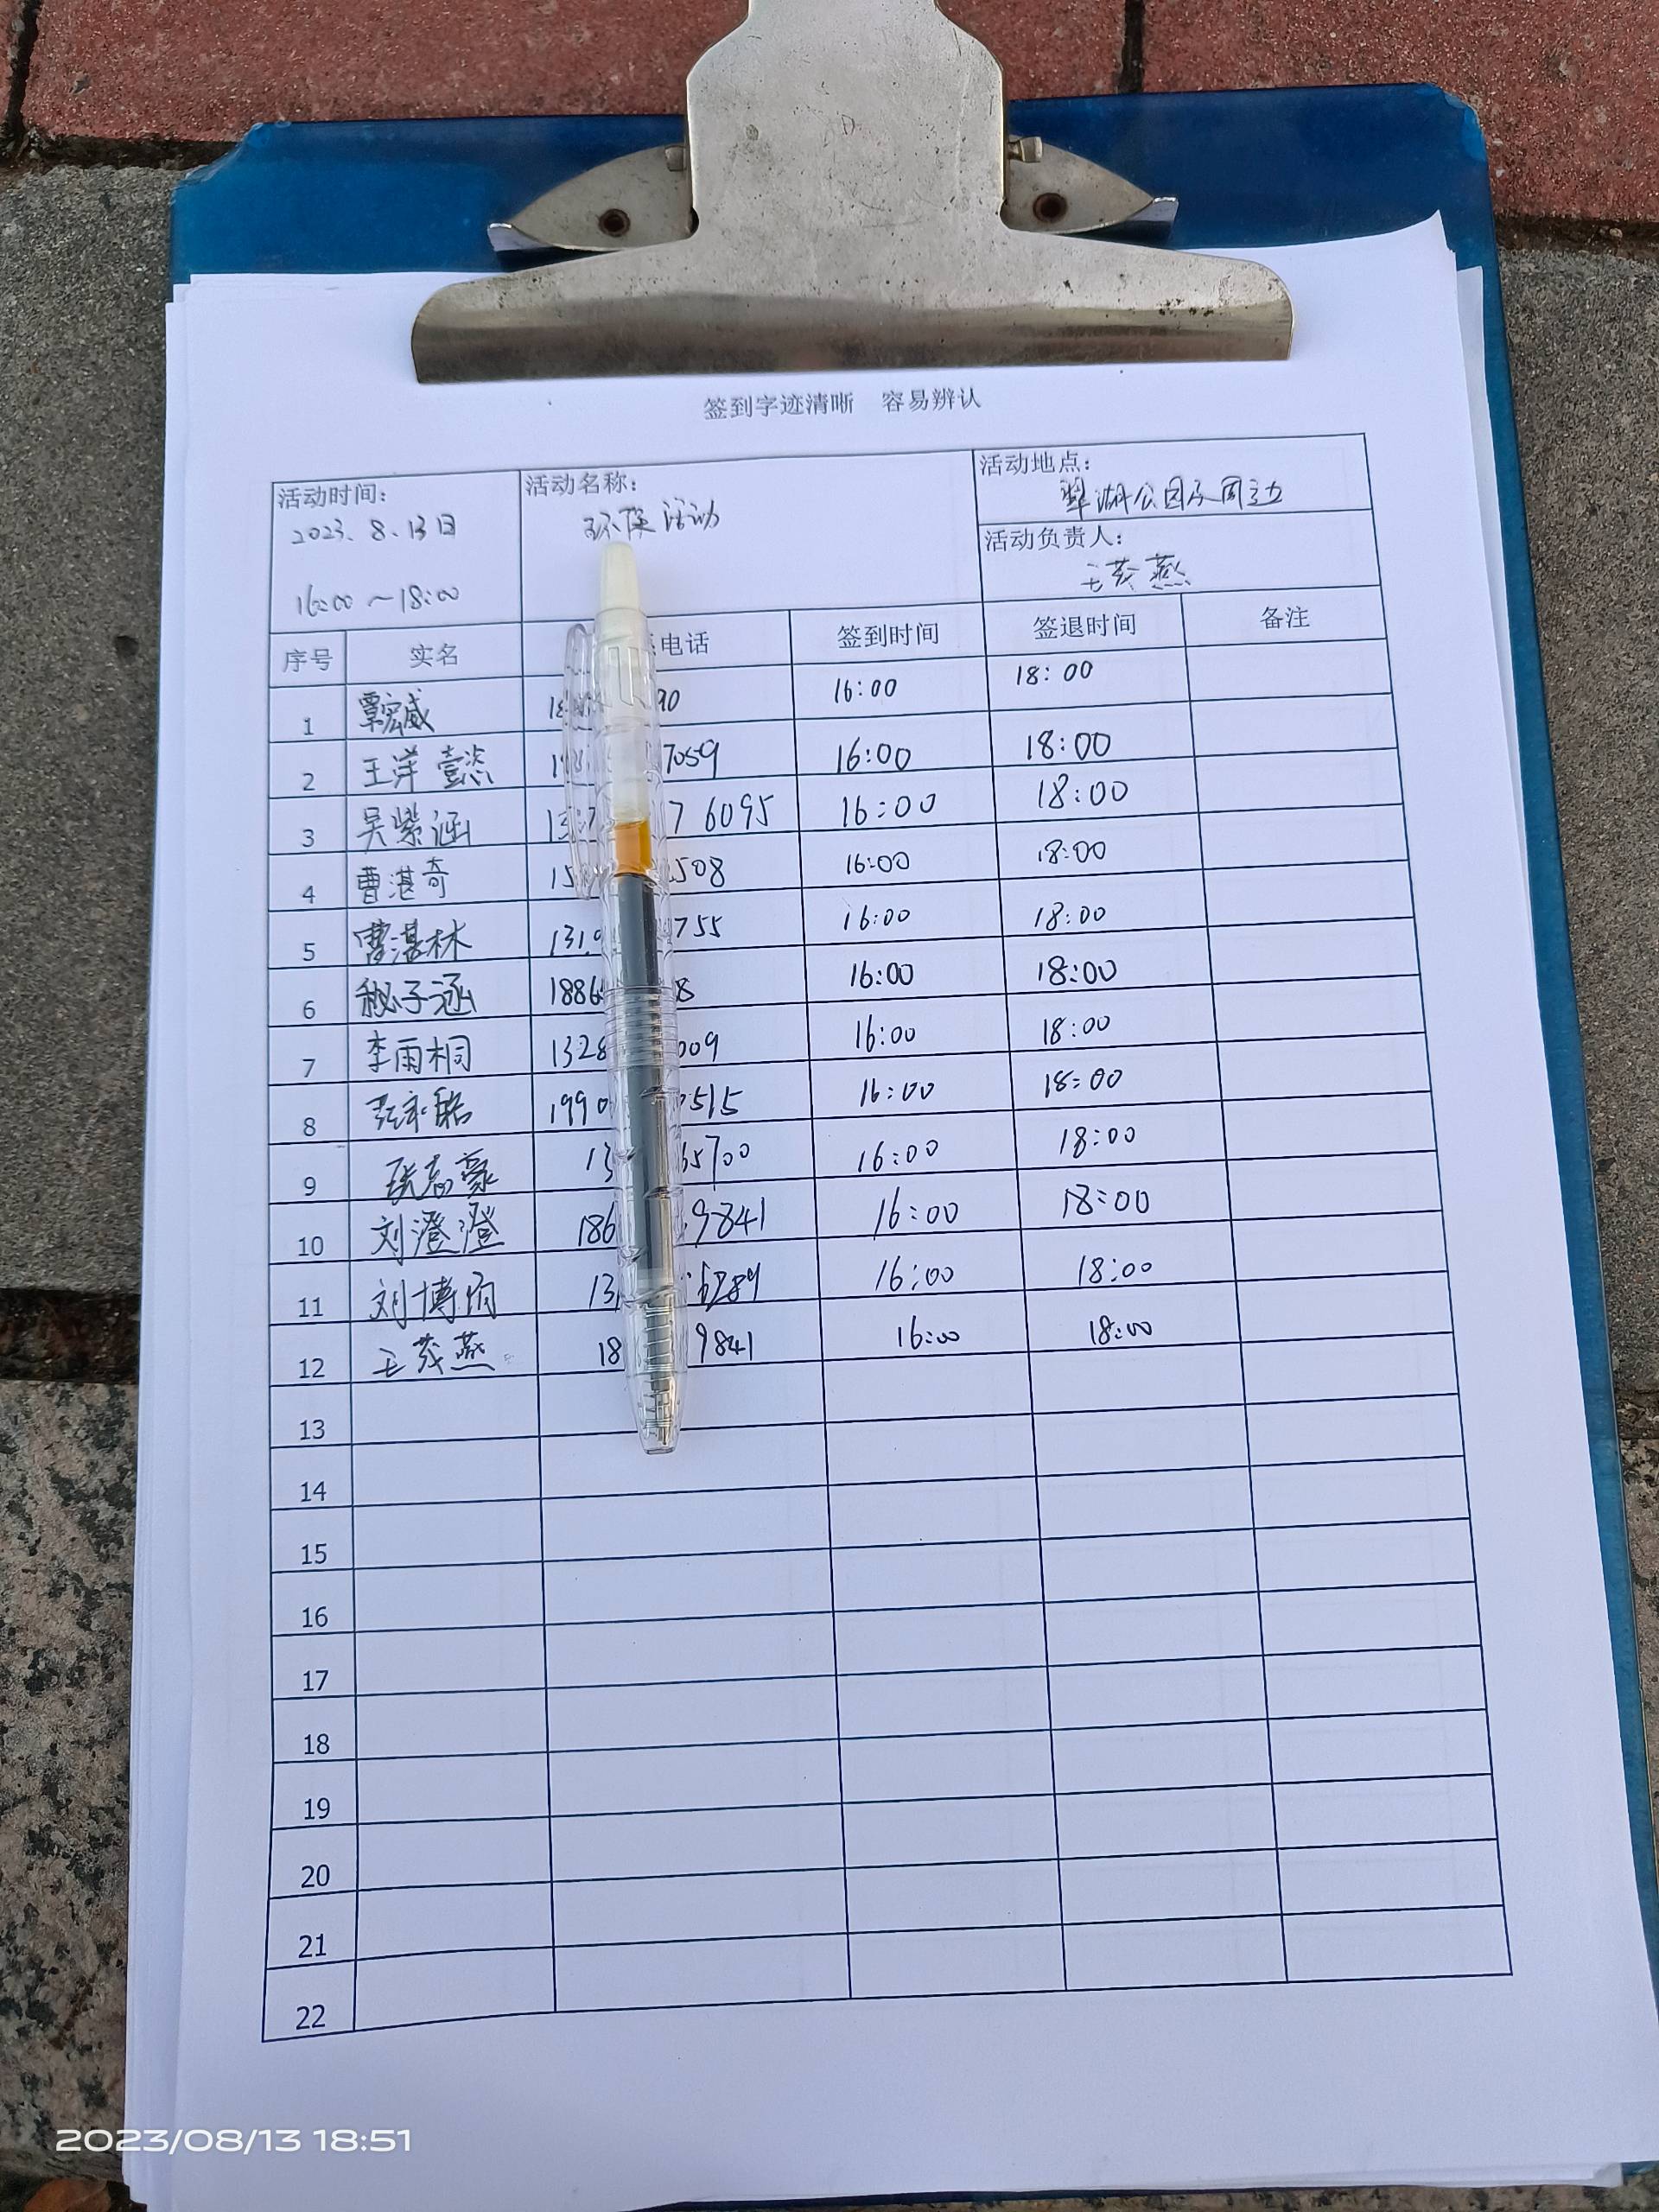 签到字迹清晰 容易辨认
活动时间: 活动名称: 活动地点:
2023.8.13日 环保活动 翠湖公园及周边
16:00~18:00 活动负责人:
王茂燕
序号 实名 电话 签到时间 签退时间 备注
1 覃宏威 90 16:00 18:00
2 王洋壹恣 7059 16:00 18:00
3 吴紫涵 7 6095 16:00 18:00
4 曹湛奇 508 16:00 18:00
5 曹湛林 131 755 16:00 18:00
6 秘子涵 1886 8 16:00 18:00
7 李雨桐 1328 009 16:00 18:00
8 1990 515 16:00 18:00
9 13 65700 16:00 18:00
10 刘澄澄 186 9841 16:00 18:00
11 13 6289 16:00 18:00
12 王茂燕 18 9841 16:00 18:00
13
14
15
16
17
18
19
20
21
22
2023/08/13 18:51